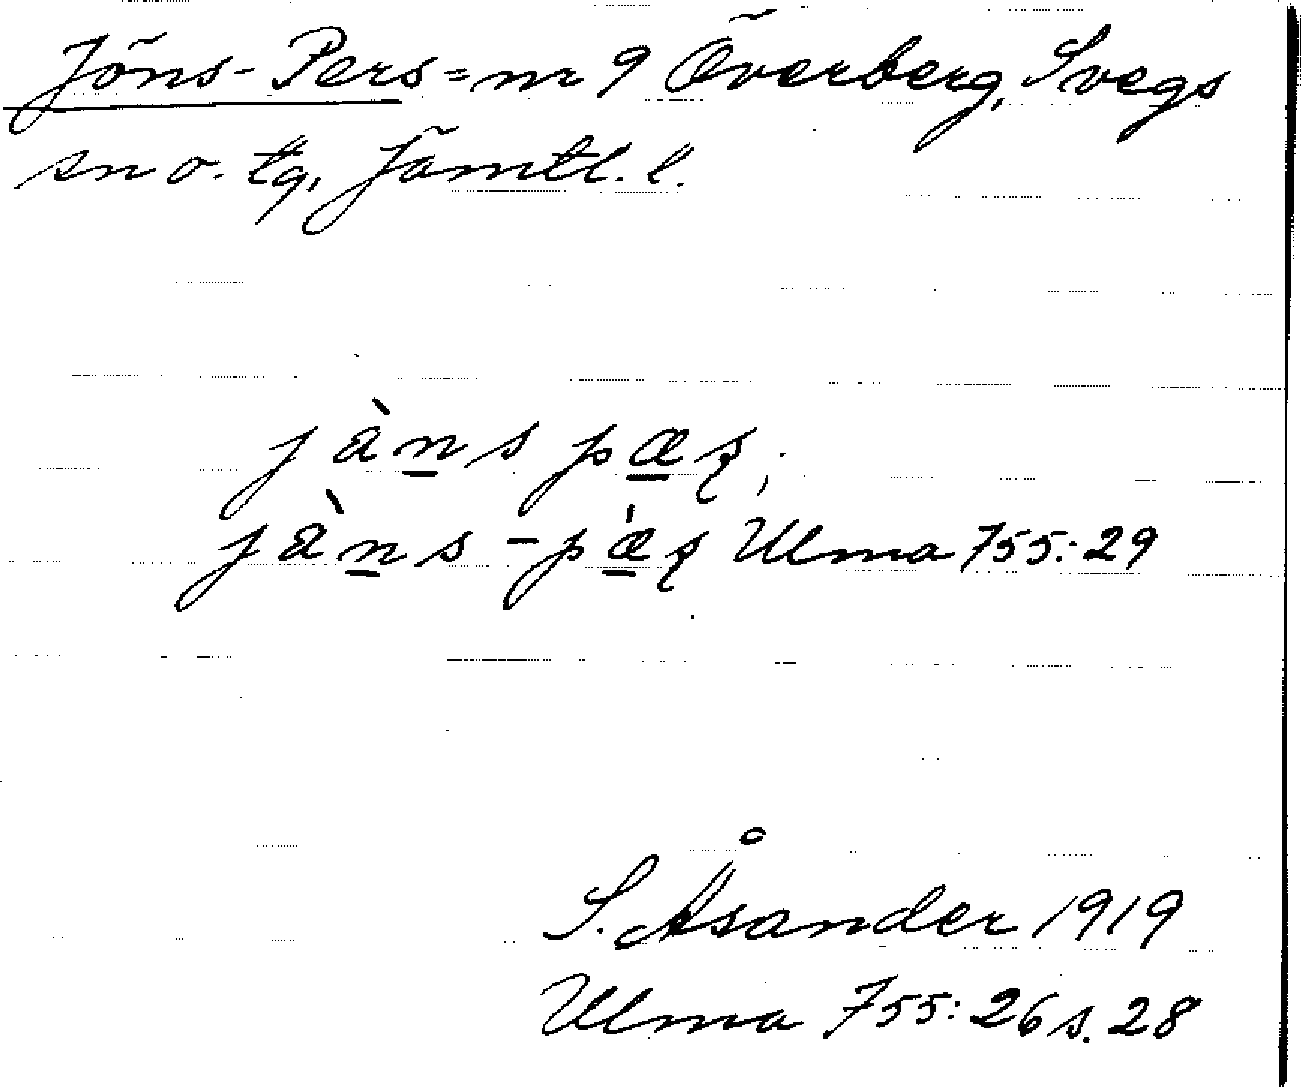 Jöns-Pers = nr 9 Överberg, Svegs
sn o. tg, Jämtl. l.
jàn̲s pæ̲ʂ,
jàn̲s-pæ̲̍ʂ Ulma 755:29
S. Åsander 1919
Ulma 755:26 s. 28